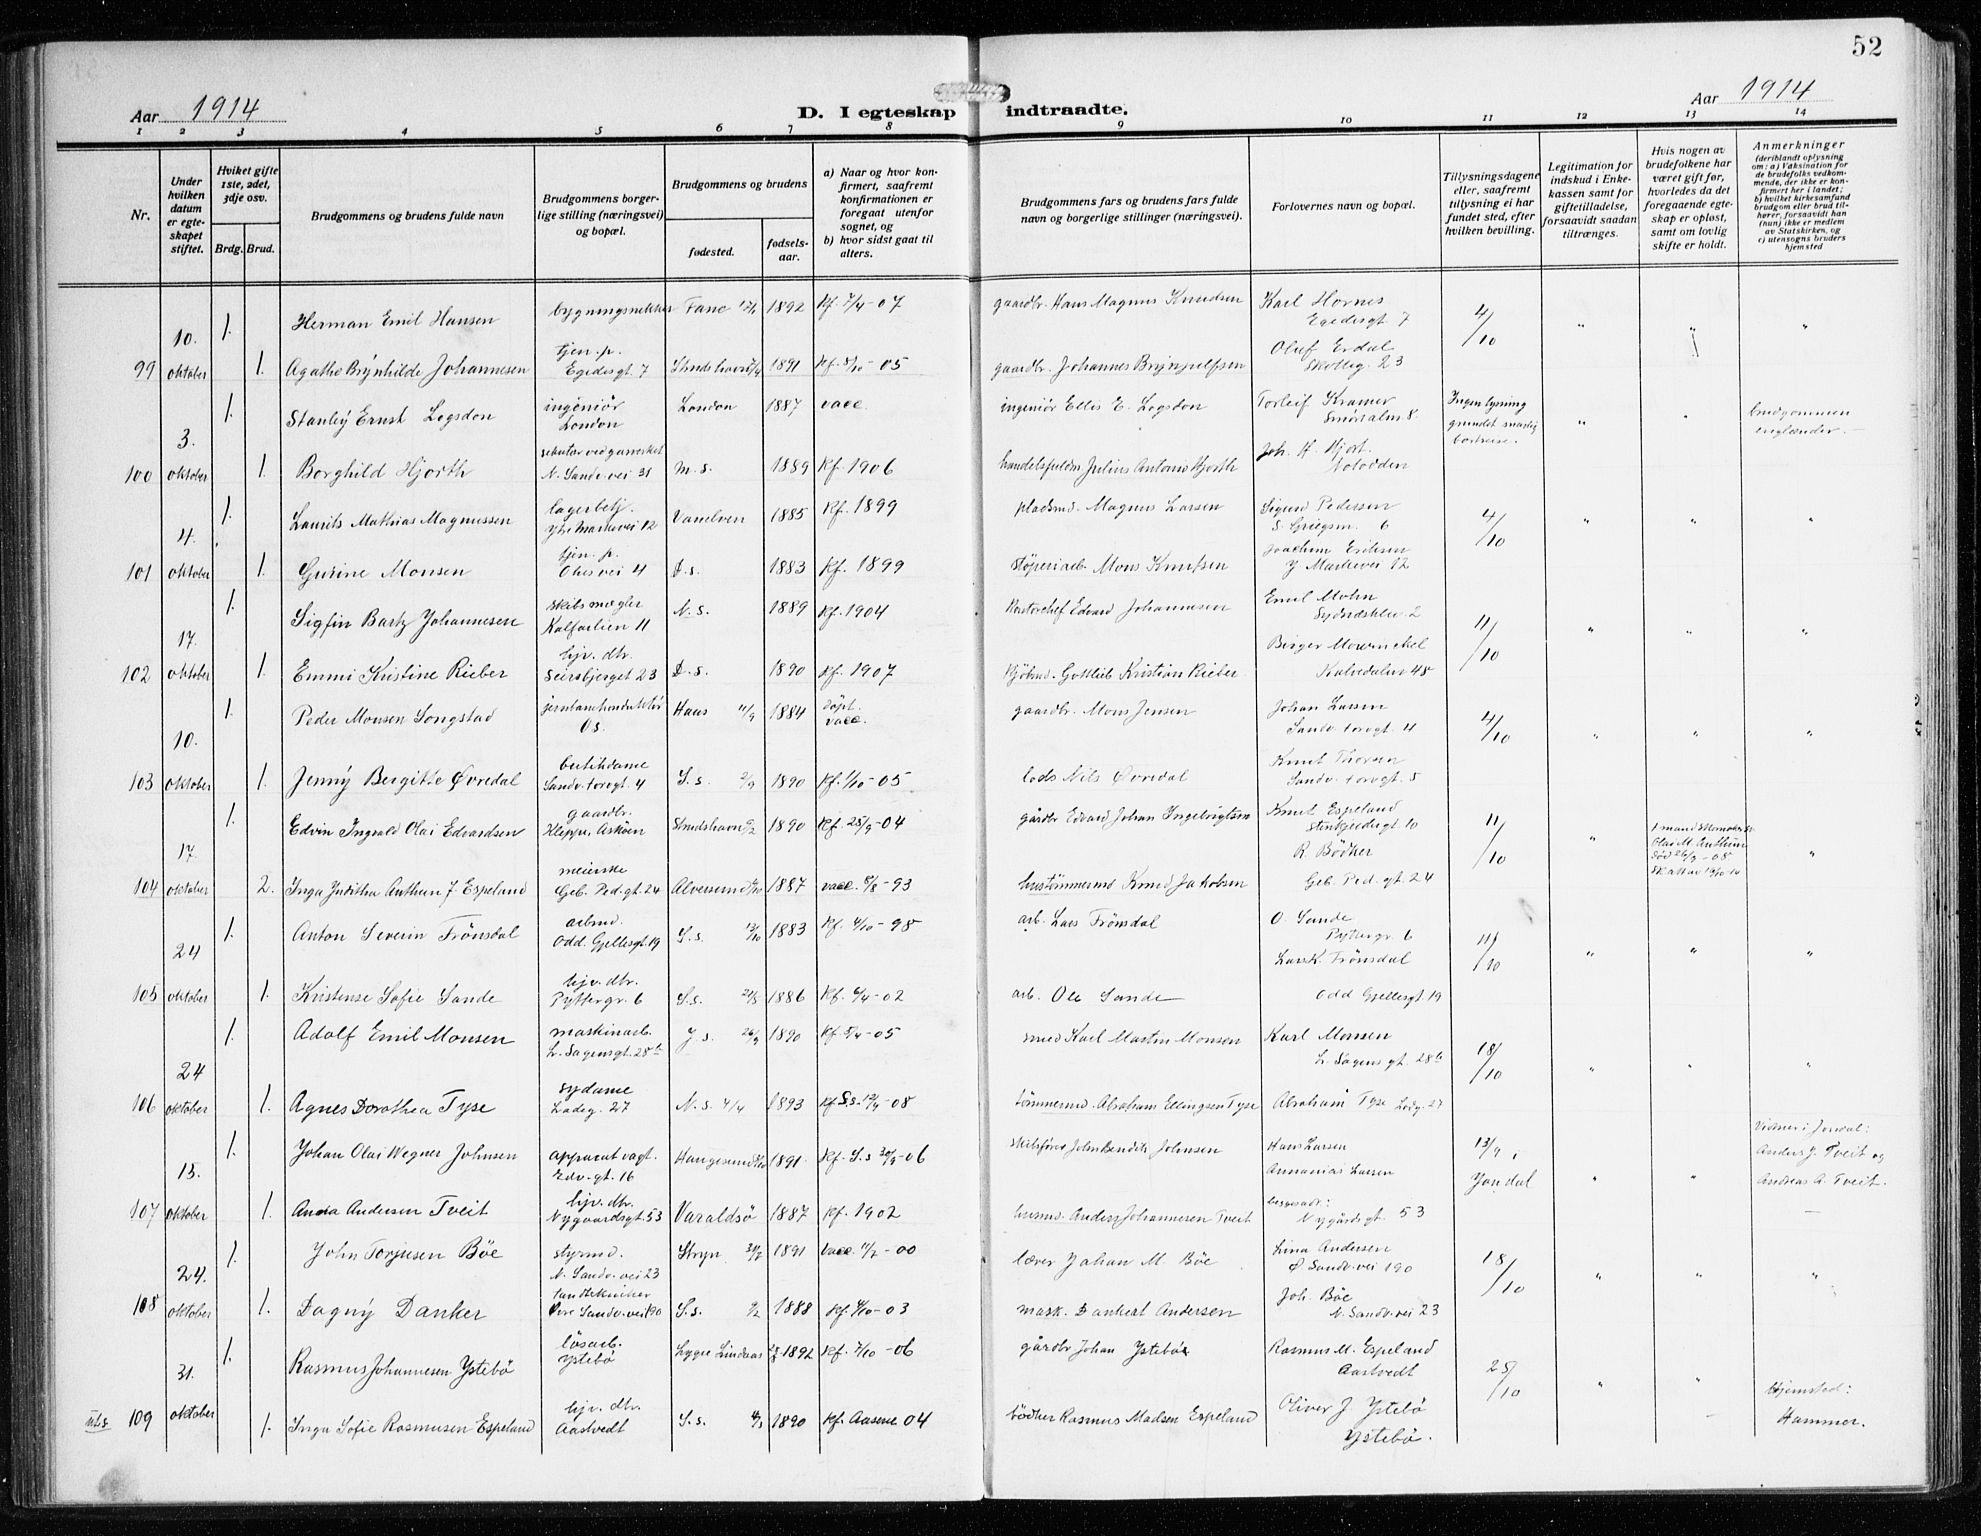 52
Aar 1914
D. I egteskap indtraadte.
Aar 1914
1 2 3 4 5 6 7 8 9 10 11 12 13 14
Nr.
Under hvilken datum er egteskapet stiftet.
Hviket gifte 1ste, 2det, 3dje osv.
Brdg. Brud.
Brudgommens og brudens fulde navn
Brudgommens borgerlige stilling (næringsvei) og bopæl.
Brudgommens og brudens
fødested.
fødselsaar.
a) Naar og hvor konfirmert, saafremt konfirmationen er foregaat utenfor sognet, og
b) hvor sidst gaat til alters.
Brudgommens fars og brudens fars fulde navn og borgerlige stillinger (næringsvei).
Forlovernes navn og bopæl.
Tillysningsdagene eller, saafremt tillysning ei har fundet sted, efter hvilken bevilling.
Legitimation for indskud i Enkekassen samt for giftetilladelse, forsaavidt saadan tiltrænges.
Hvis nogen av brudefolkene har været gift før, hvorledes da det foregaaende egteskap er opløst, samt om lovlig skifte er holdt.
Anmerkninger
(deriblandt oplysning om: a) Vaksination for de brudefolks vedkommende, der ikke er konfirmert her i landet; b) hvilket kirkesamfund brudgom eller brud tilhører, forsaavidt han (hun) ikke er medlem av Statskirken, og c) utensogns bruders hjemsted
10. 1. Herman Emil Hansen bygningsnekker Fane 1892 Kf. 7/4-07 gaardbr. Hans Magnus Knudsen Karl Hornes Egedesgt 7 4/10 " " "
99 oktober 1. Agathe Brynhilde Johannesen tjen. p. Egedesgt 7 1891 05 gaardbr. Johannes Brynjulfsen Oluf Erdal Skotteg. 23
3. 1. Stanley Ernst Logsdon ingeniör London London 1887 vacc. ingeniör Ellis E. Logsdon Torleif Kramer 8 Ingen lysning grundet snarlig bortreise. " " brudgommen englænder.
100 oktober 1. Borghild Hjorth N. Sandv. vei 31 M.s. 1889 Kf. 1906 Julius Antonio Hjorth Joh. H. Hjort. Notodden
4. 1. Laurits Mathias Magnussen lagerbetj. Vanelven 1885 Kf. 1899 pladsmd. Magnus Larsen Sigurd Pedersen 6 4/10 " " "
101 oktober 1. Gurine Monsen tjen. p. vei 4 D.s. 1883 Kf. 1899 støperiarb. Mons Knutsen Joachim Eriksen Y Markevei 12
17. 1. Sigfin Bartz Johannesen skibsmægler Kalfarlien 11 N.s. 1889 Kf. 1904 Kontorchef Edvard Johannesen Emil Mohn 2 11/10 " " "
102 oktober 1. Emmi Kristine Rieber hjv. dtr. Seiersbjerget 23 D.s. 1890 Kf. 1907 Kjöbmd. Gottlieb Kristian Rieber Birger Mowinckel Kalvedalsv 48
10. 1. Peder Monsen Songstad Os. Haus 11/9 1884 döpt. vacc. gaardbr. Mons Jensen Johan Larsen Sandv. torvgt. 4 4/10 " " "
103 oktober 1. Jenny Bergitte Øvredal butikdame Sandv. torvgt. 4 S.s. 2/9 1890 Kf. 1/10-05 lods Nils Øvredal Knut Thorsen Sandv. torvgt. 5
17. 1. Edvin Ingvald Olai Edvardsen gaardbr. Kleppe, Askøen 1890 Kf. 25/9-04 gårdbr Edvard Johan Ingebrigtsen Knut Espeland 10 11/10 " 1 mand Olai M. Anthun död 26/3-08 "
104 oktober 2. Inga Juditha Anthun f Espeland meierske Geb. Ped. gt. 24 Alversund 1887 vacc. 5/8-93 hustömmermd Knud Jakobsen R. Bödker Geb. Ped. gt. 24
24 1. Anton Severin Frönsdal arbmd. Odd. Gjellesgt. 19 S.s. 13/10 1883 Kf. 4/10-98 arb. Lars Frönsdal O. Sande Pyttergr. 6 11/10 " " "
105 oktober 1. Kristense Sofie Sande hjv. dtr. Pyttergr. 6 S.s. 1886 Kf. 6/4-02 arb. Ole Sande Lars K. Frönsdal Odd Gjellesgt. 19
24 1. Adolf Emil Monsen maskinarb. L. Sagensgt. 28b J.s. 26/9 1890 Kf. 5/4-05 smed Karl Martin Monsen Karl Monsen L. Sagens gt. 28b 18/10 " " "
106 oktober 1. Agnes Dorothea Tyse sydame Ladeg. 27 N.s. 4/4 1893 Kf S.s. 12/4-08 tömmermd. Abraham Ellingsen Tyse Abraham Tyse Ladg. 27
15. 1. Johan Olai Wegner Johnsen apparat vagt. Edv. gt. 16 Haugesund 1891 Kf. S.s 30/9-06 skibsförer John Bendik Johnsen Hans Larsen Annanias Larsen 13/9, Jondal " " Vidner i Jondal: Anders J. Tveit og Andreas A. Tveit.
107 oktober 1. Anna Andersen Tveit hjv. dtr. Nygaardsgt. 53 Varaldsö 1887 Kf. 1902 husmd. Anders Johannesen Tveit begge adr: Nygårdsgt. 53
24. 1. John Torjusen Böe styrmd. N. Sandv. vei 23 Stryn 1891 Vacc. 11/2-00 lærer Johan M. Böe Lina Andersen Ø. Sandv. vei 190 18/10 " " "
108 oktober 1. Dagny Danker tandtekniker Øvre Sandv. vei 190 S.s. 1888 Kf. 4/10-03 mask. Dankert Andersen Joh. Böe N. Sandv. vei 23
31. 1. Rasmus Johannesen Ystebö lösarb. Ystebö Lygre Lindaas 1892 Kf. 7/10-06 gårdbr Johan Ystebö Rasmus M. Espeland Aastvedt 25/10 " " Hjemsted: Hammer.
uts 109 oktober 1. Inga Sofie Rasmusen Espeland hjv. dtr. Aastvedt S.s. 1890 Kf. Aasene 04 bödker Rasmus Madsen Espeland Oliver J Ystebö Ystebö.